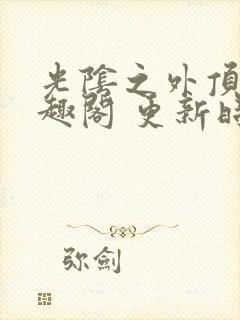 光陰之外頂
趣閣 更新時
弥劍